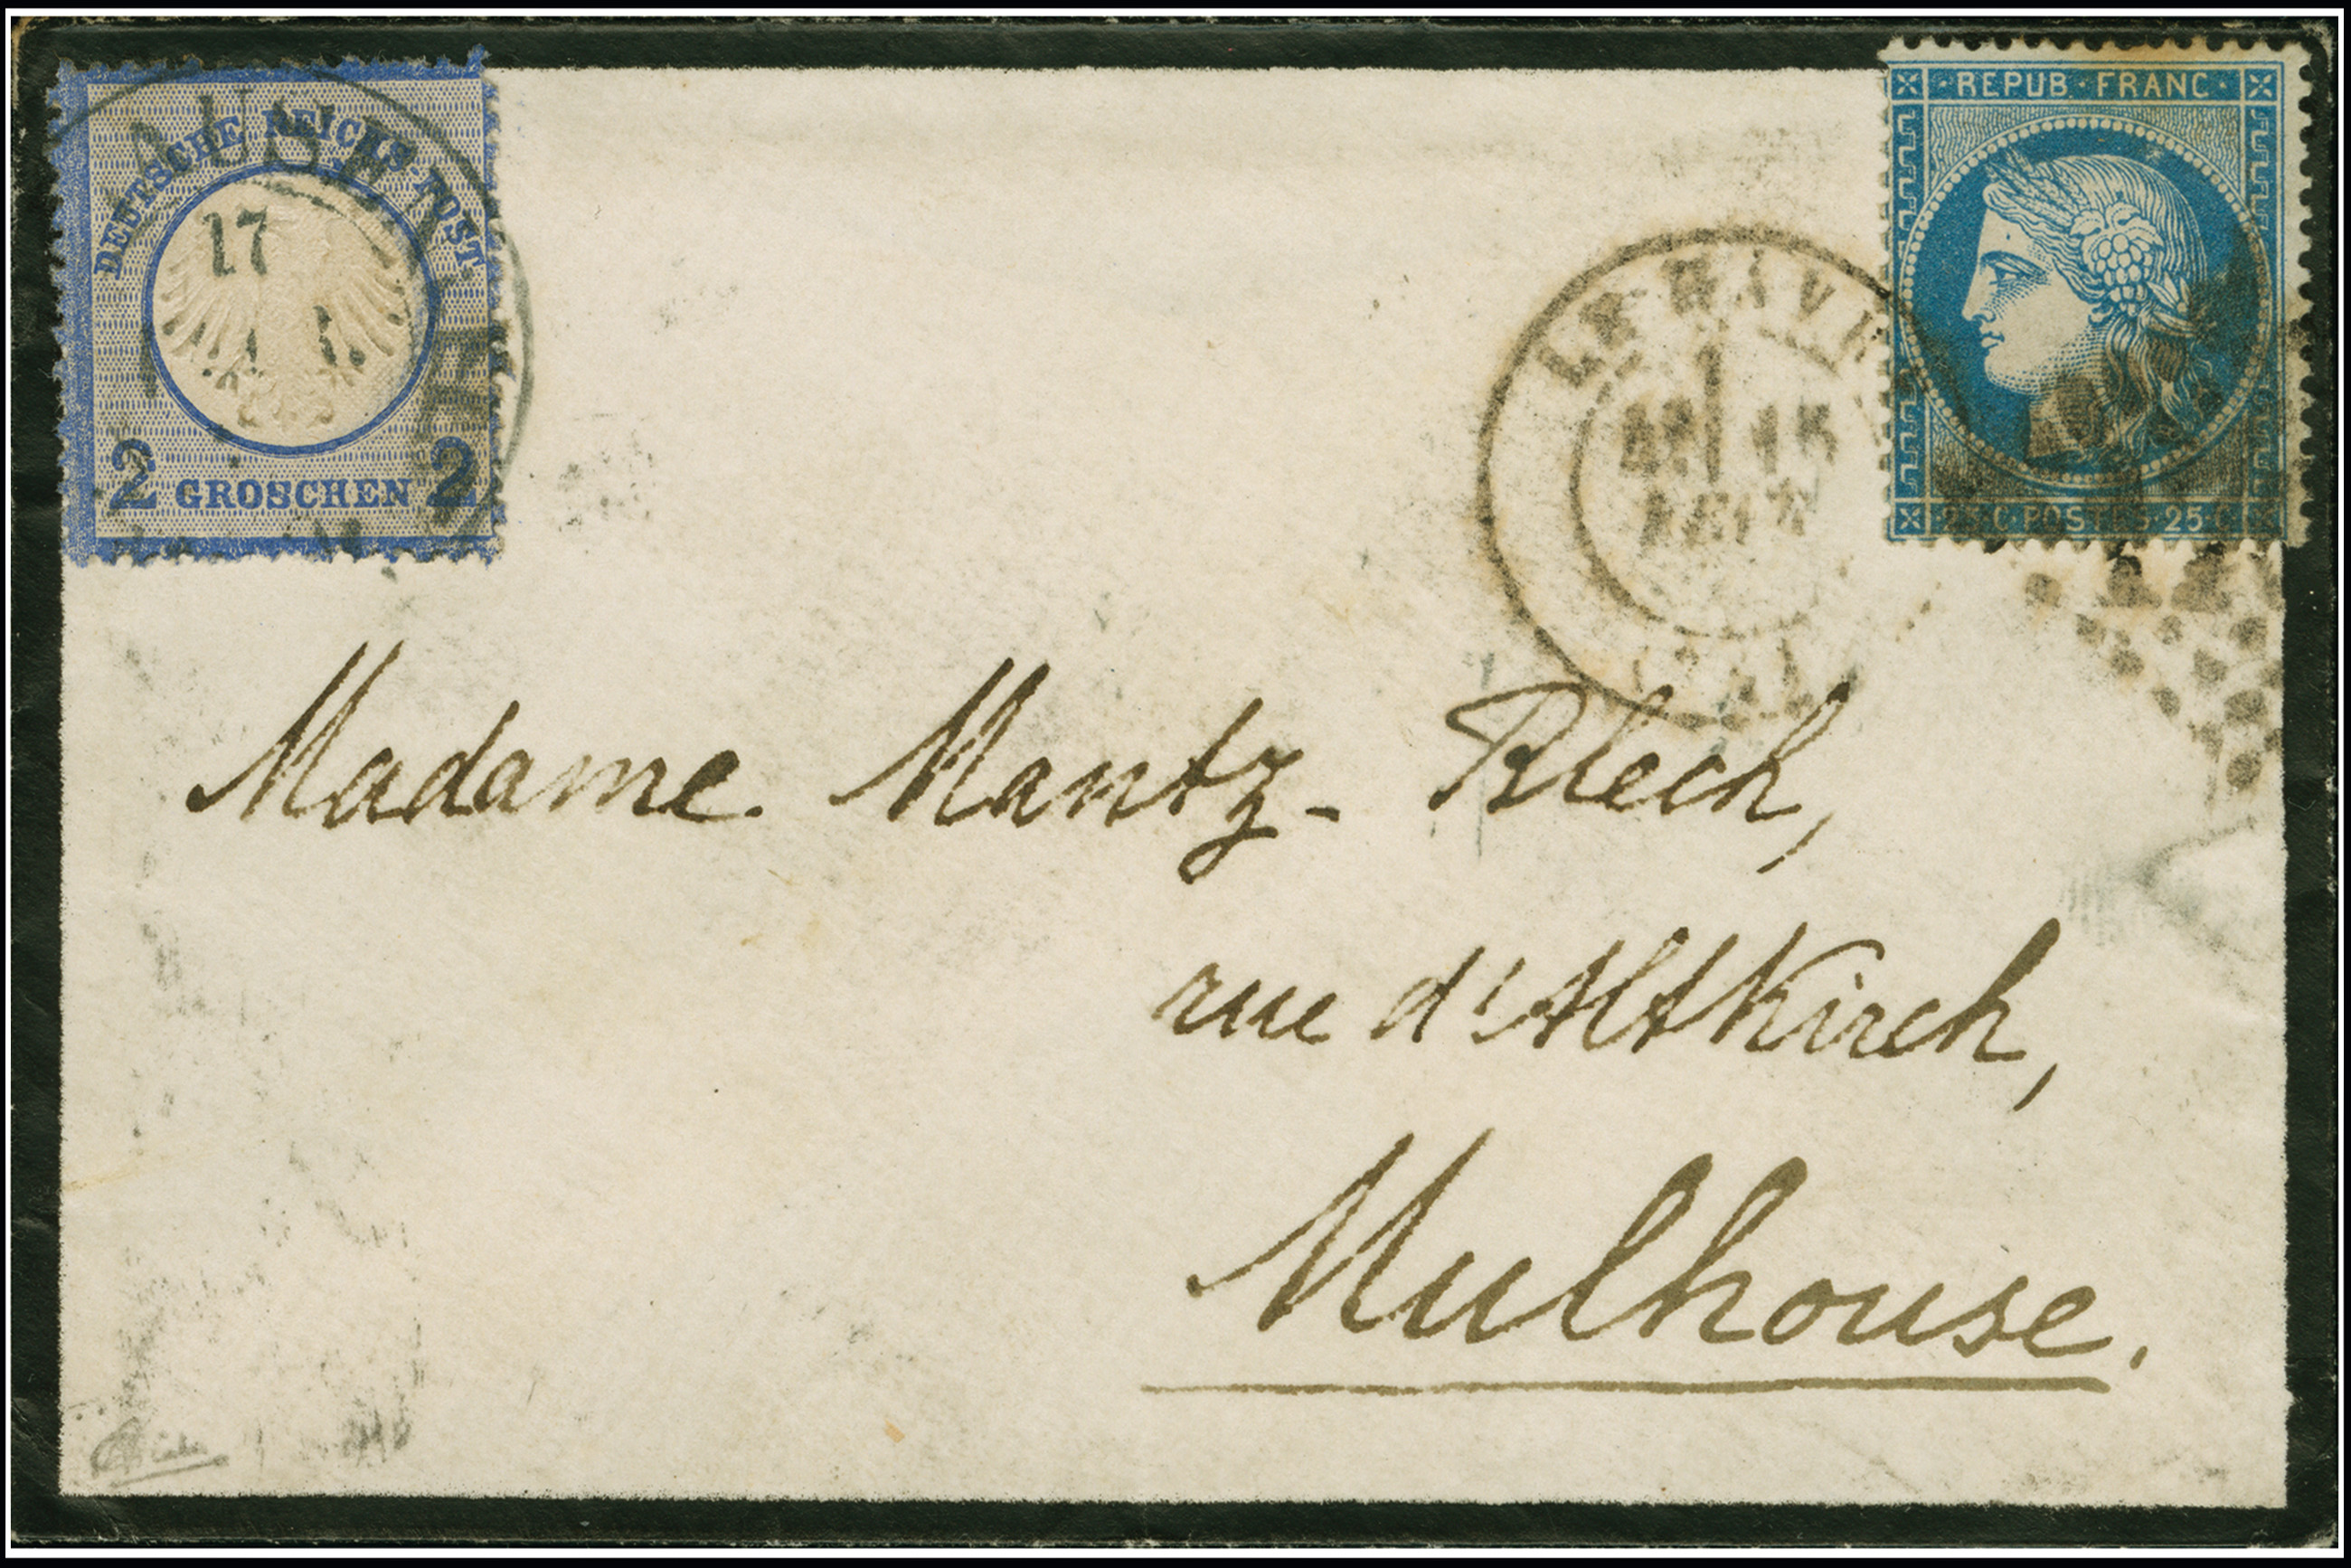 DEUTSCHE REICHS-POST
17
2 GROSCHEN 2
REPUB·FRANC·
25·C·POSTES·25·C
LE HAVRE
15
Madame Mantz-Blech,
rue d'Altkirch,
Mulhouse.